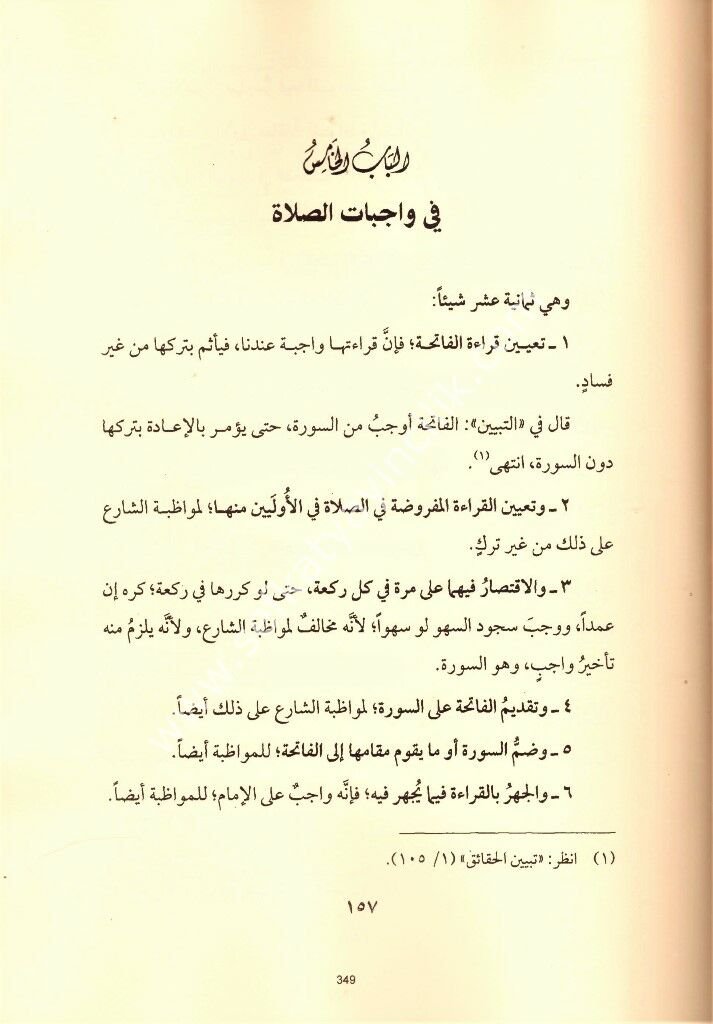 الباب الخامس
في واجبات الصلاة
وهي ثمانية عشر شيئاً:
١ ـ تعيين قراءة الفاتحة؛ فإنَّ قراءتها واجبة عندنا، فيأثم بتركها من غير
فسادٍ.
قال في «التبيين»: الفاتحة أوجبُ من السورة، حتى يؤمر بالإعادة بتركها
دون السورة، انتهى(١).
٢ ـ وتعيين القراءة المفروضة في الصلاة في الأُولَيين منها؛ لمواظبة الشارع
على ذلك من غير تركٍ.
٣ ـ والاقتصارُ فيهما على مرة في كل ركعة، حتى لو كررها في ركعة؛ كره إن
عمداً، ووجبَ سجود السهو لو سهواً؛ لأنَّه مخالفٌ لمواظبة الشارع، ولأنَّه يلزمُ منه
تأخيرُ واجبٍ، وهو السورة.
٤ ـ وتقديمُ الفاتحة على السورة؛ لمواظبة الشارع على ذلك أيضاً.
٥ ـ وضمُّ السورة أو ما يقوم مقامها إلى الفاتحة؛ للمواظبة أيضاً.
٦ ـ والجهرُ بالقراءة فيما يُجهر فيه؛ فإنَّه واجبٌ على الإمام؛ للمواظبة أيضاً.
(١) انظر: «تبيين الحقائق» (١/ ١٠٥).
١٥٧
349